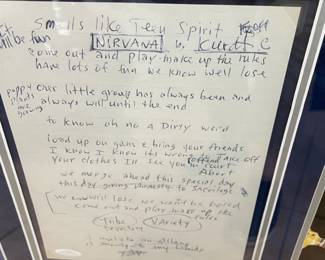 Smells like Teen Spirit
will be fun
NIRVANA
Kurdt C
come out and play - make up the rules
have lots of fun we know we'll lose
poppy plants are growing
Our little group has always been and
always will until the end
to know oh no a Dirty word
load up on guns & bring your friends
I know I know its wrong to offend
take off
Your clothes Ill see you in court
Abort
we merge ahead this special day
this day giving amnesty to sacrilege
we know we'll lose we won't be bored
come out and play make up the
rules
Tribe Variety